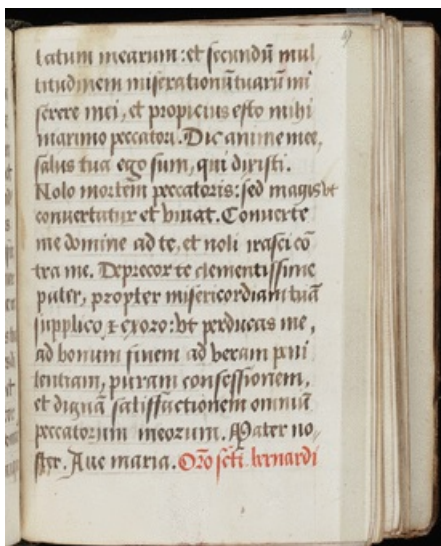 tatum mearum: et secundū mul
titudinem miserationū tuarum mi
serere mei, et propicius esto mihi
maximo peccatori. Dic anime mee,
salus tua ego sum, qui dixisti.
Nolo mortem peccatoris: sed magis vt
conuertatur et viuat. Conuerte
me domine ad te, et noli irasci cō
tra me. Deprecor te clementissime
pater, propter misericordiam tuā
supplico & exoro: vt perducas me,
ad bonum finem ad veram peni
tentiam, puram confessionem,
et dignā satisfactionem omniū
peccatorum meorum. Pater no-
ster. Aue maria. Orō scti bernardi